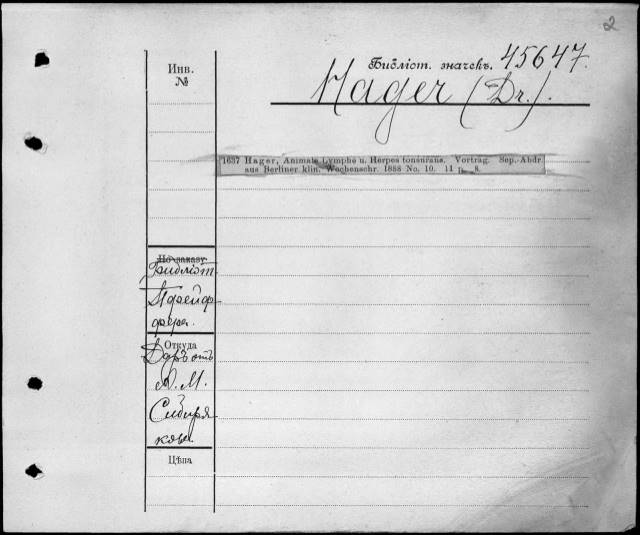 2
Инв.
№
Библіот. значекъ. 45647.
Hager (Dr.).
1637 Hager, Animale Lymphe u. Herpes tonsurans. Vortrag. Sep.-Abdr.
aus Berliner klin. Wochenschr. 1888 No. 10. 11 8.
По заказу
Библіот.
Пфейф-
фера.
Откуда
Даръ отъ
А. М.
Сибиря-
кова.
Цѣна